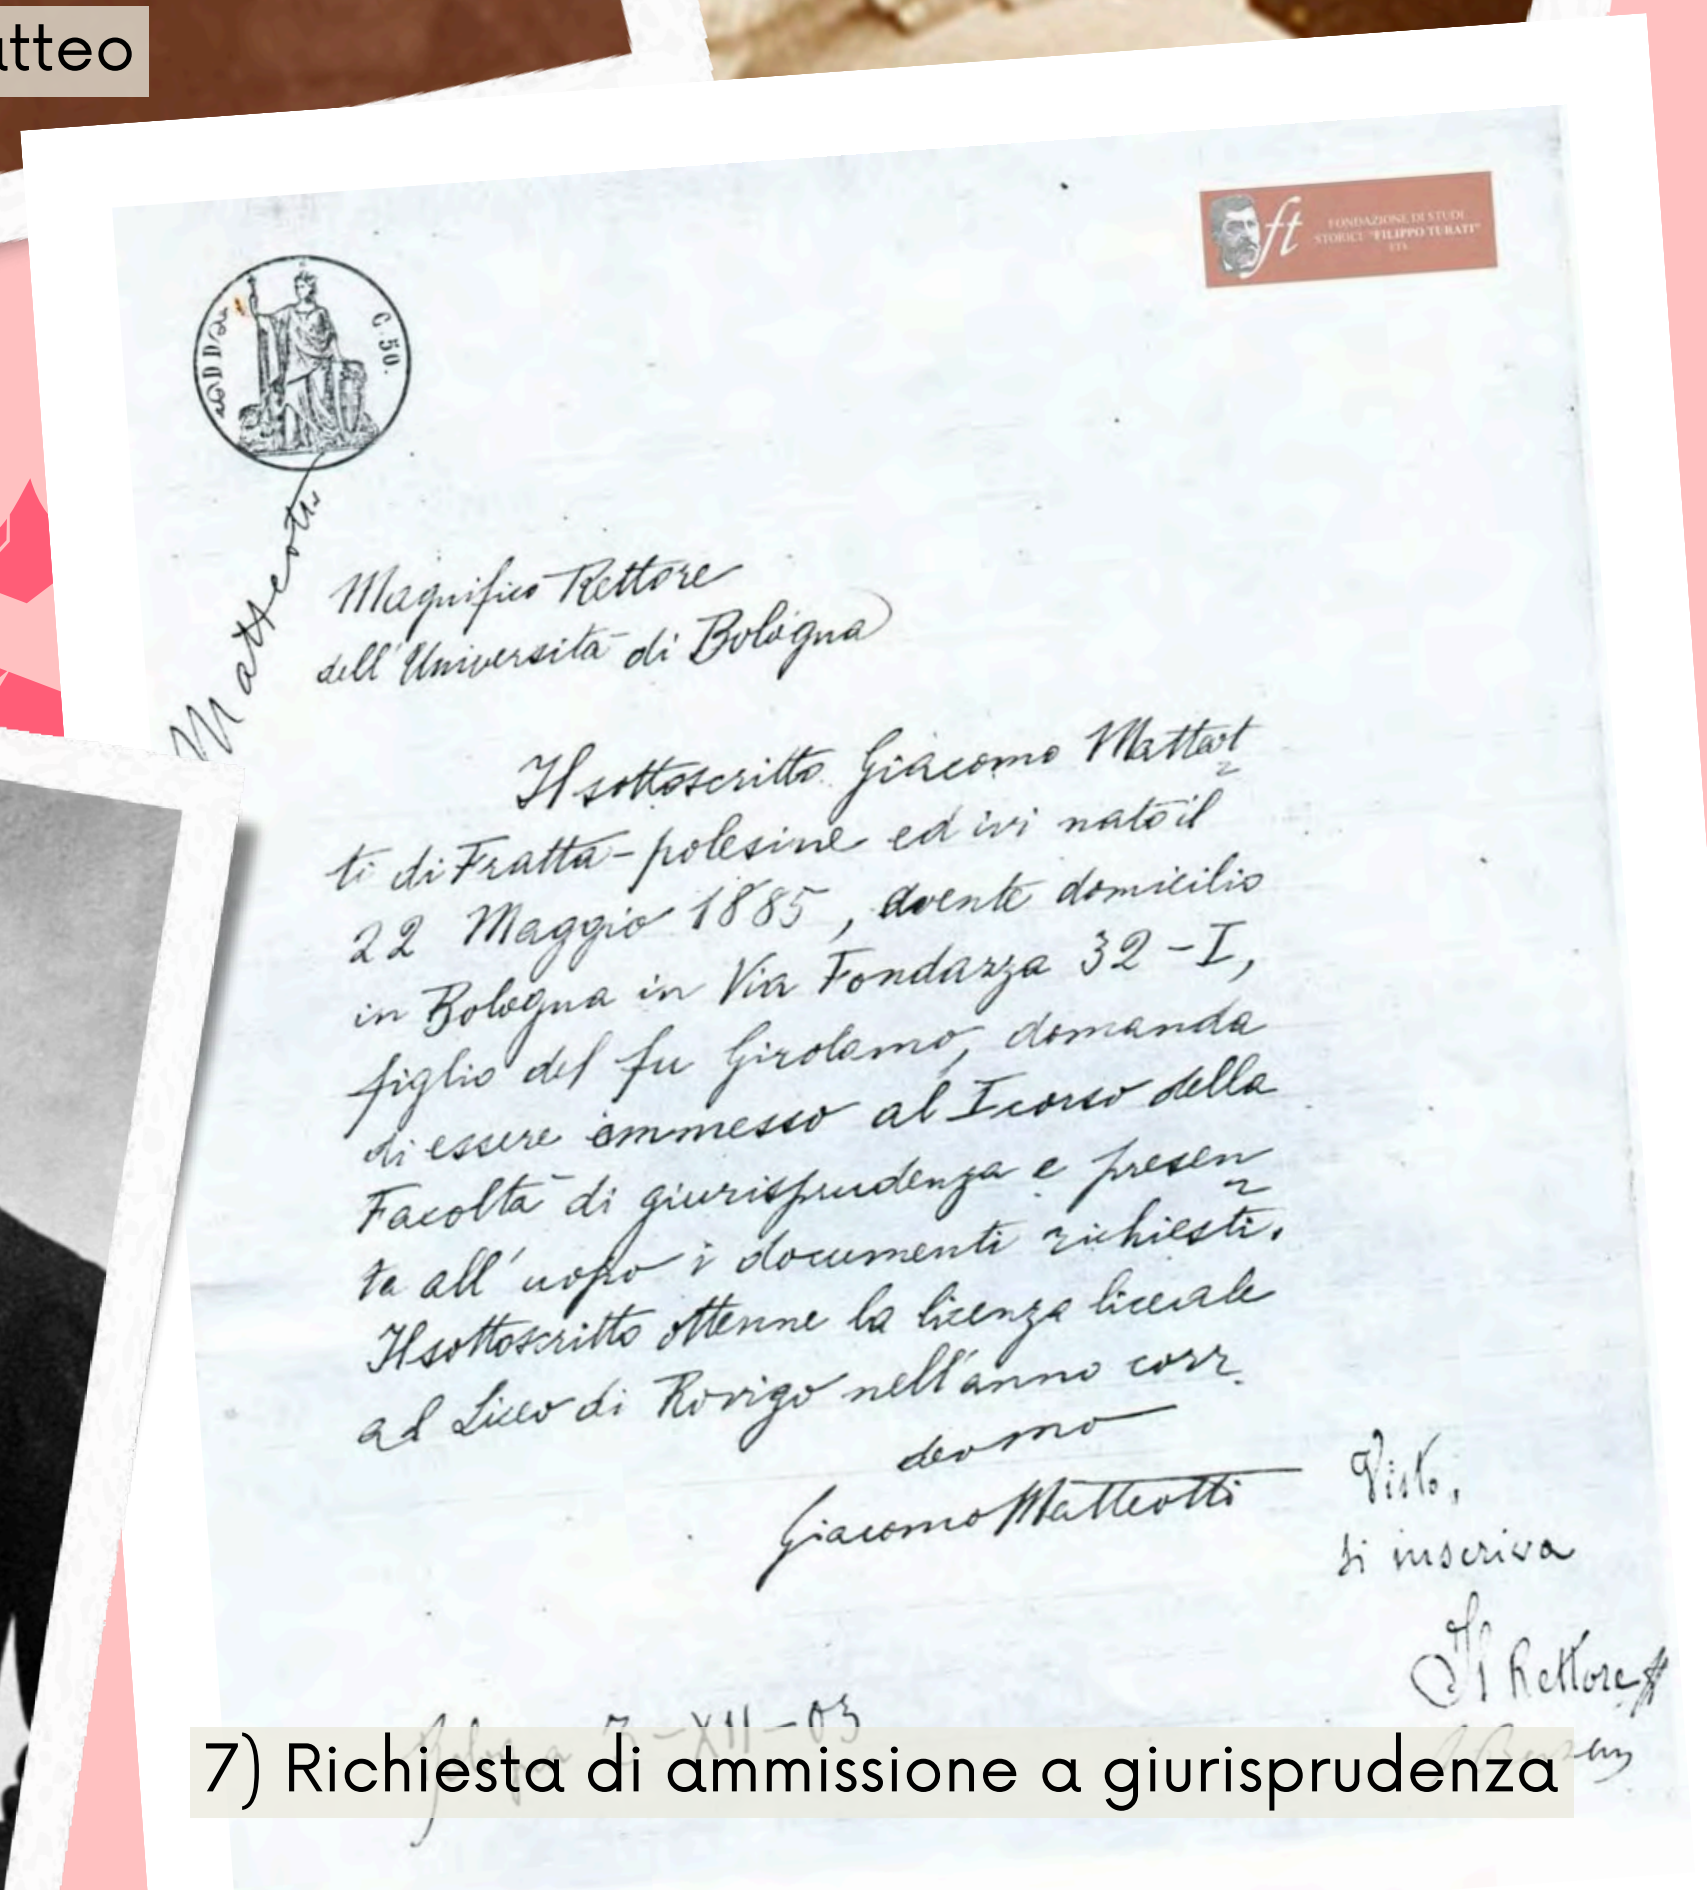 atteo
FONDAZIONE DI STUDI
STORICI "FILIPPO TURATI"
ft
C. 50.
Matteotti
Magnifico Rettore
dell'Università di Bologna
Il sottoscritto Giacomo Matteot
ti di Fratta-polesine ed ivi nato il
22 Maggio 1885, avente domicilio
in Bologna in Via Fondazza 32-I,
figlio del fu Girolamo, domanda
di essere ammesso al I corso della
Facoltà di giurisprudenza e presen
ta all'uopo i documenti richiesti.
Il sottoscritto ottenne la licenza liceale
al Liceo di Rovigo nell'anno corr.
devomo
Giacomo Matteotti
Visto,
si inscriva
Il Rettore
Bologna 3-XII-03
7) Richiesta di ammissione a giurisprudenza